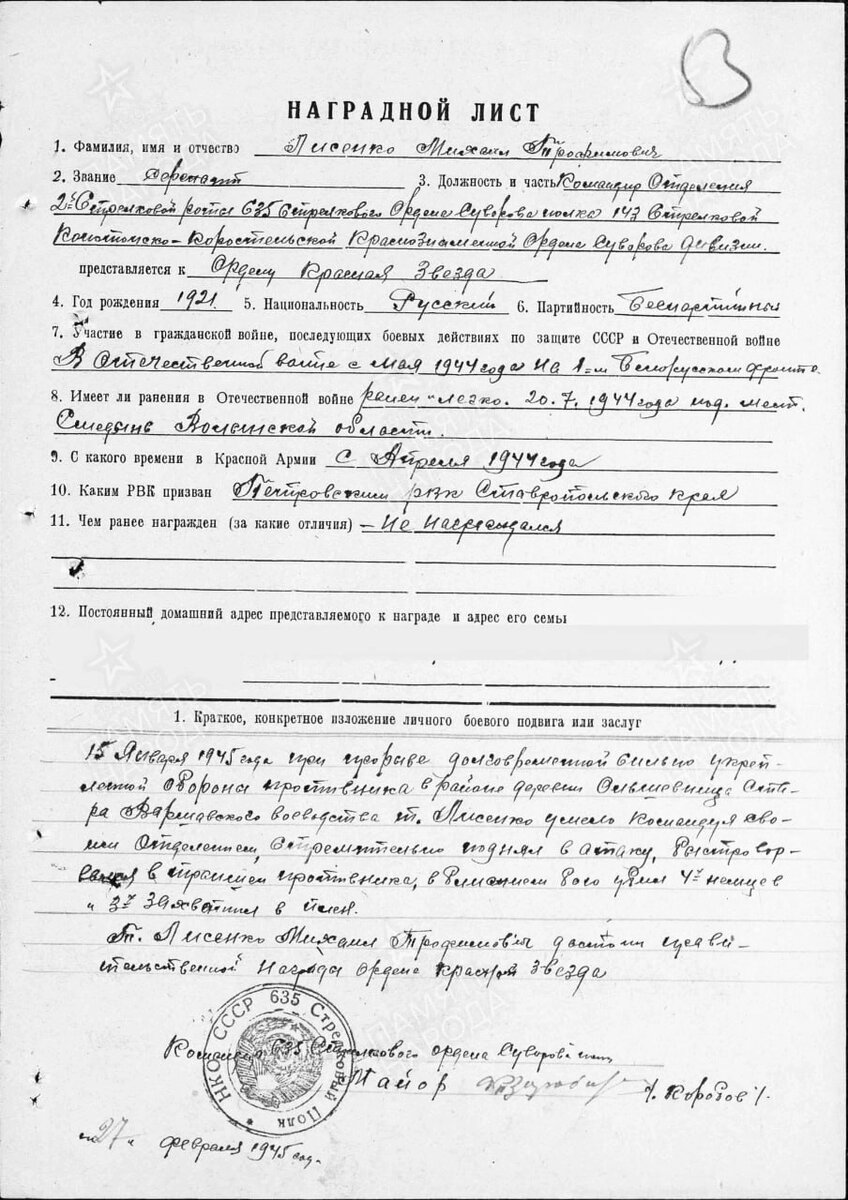 В
НАГРАДНОЙ ЛИСТ
1. Фамилия, имя и отчество Лисенко Михаил Трофимович
2. Звание Сержант 3. Должность и часть Командир Отделения
2й Стрелковой роты 635 Стрелкового Ордена Суворова полка 143 Стрелковой
Конотопско-Коростеньской Краснознаменной Ордена Суворова дивизии.
представляется к Ордену Красная Звезда
4. Год рождения 1921 5. Национальность Русский 6. Партийность Беспартийный
7. Участие в гражданской войне, последующих боевых действиях по защите СССР и Отечественной войне
В Отечественной войне с мая 1944 года на 1-м Белорусском фронте
8. Имеет ли ранения в Отечественной войне ранен "легко" 20.7.1944 года под. мест.
Смедынь Волынской области.
9. С какого времени в Красной Армии С Апреля 1944 года
10. Каким РВК призван Петровским рвк Ставропольского края
11. Чем ранее награжден (за какие отличия) – Не Награждался
12. Постоянный домашний адрес представляемого к награде и адрес его семьи
1. Краткое, конкретное изложение личного боевого подвига или заслуг
15 Января 1945 года при прорыве долговременной сильно укреп-
ленной обороны противника в районе деревни Ольшевница Ста-
ра Варшавского воеводства т. Лисенко умело командуя сво-
им Отделением, стремительно поднял в атаку, быстро вор-
в траншеи противника, в бою убил 4х немцев
и 3х захватил в плен.
Т. Лисенко Михаил Трофимович достоин прави-
тельственной Награды ордена Красная Звезда
НКО СССР 635 Стрелковый Полк
Командир 635 Стрелкового ордена Суворова полка
Майор /. Коротов /.
"27" февраля 1945 год.